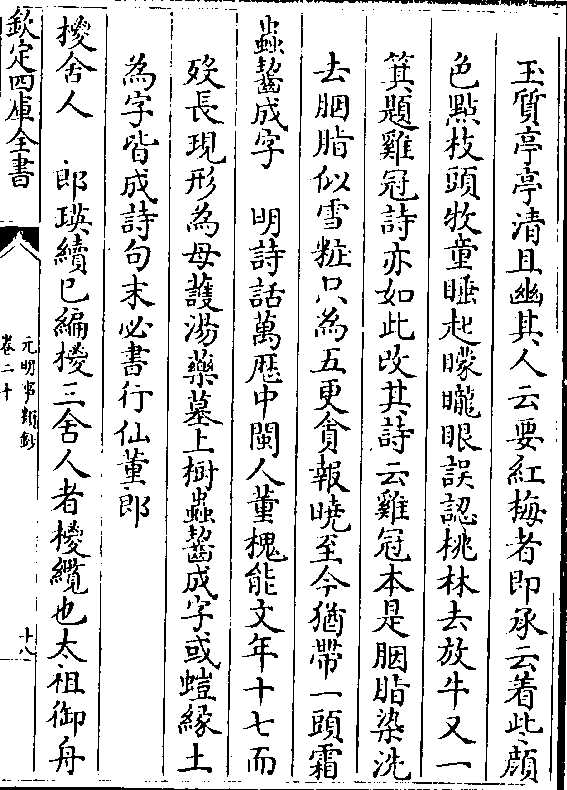 玉質亭亭清且幽其人云要紅梅者即承云着些顔
色點枝頭牧童睡起矇矓眼誤認桃林去放牛又一
箕題雞冠詩亦如此改其詩云雞冠本是胭脂染洗
去胭脂似雪粧只為五更貪報曉至今猶帶一頭霜
蟲齧成字　明詩話萬歴中閩人董槐能文年十七而
歿長現形為母䕶湯藥墓上樹蟲齧成字或螘緣土
為字皆成詩句末必書行仙董郎
㰐舍人　郎瑛續已編㰐三舍人者㰐纜也太祖御舟
欽定四庫全書
元明事類鈔
卷二十
十八